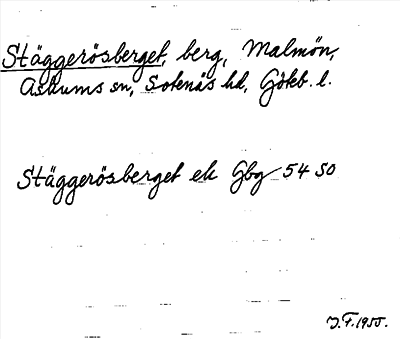 Stäggerösberget, berg, Malmön,
Askums sn, Sotenäs hd, Göteb. l.
Stäggerösberget ek Gbg 54 SO
J.F. 1955.